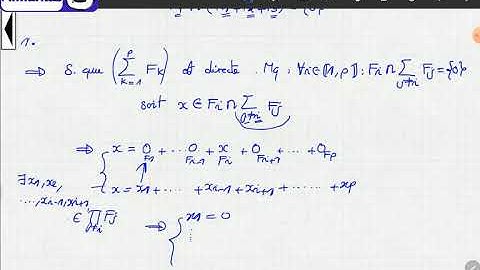 1.
⇒ S. que (∑_{k=1}^{p} F_k) est directe. Mq : ∀i∈⟦1,p⟧ : F_i ∩ ∑_{j≠i} F_j = {0}
soit x ∈ F_i ∩ ∑_{j≠i} F_j
⇒ { x = 0_{F_1} + ... 0_{F_{i-1}} + x_{F_i} + 0_{F_{i+1}} + ... + 0_{F_p}
∃x_1,x_2,
x = x_1 + .... + x_{i-1} + x_{i+1} + ...... + x_p
...,x_{i-1},x_{i+1}
∈ ∏_{j≠i} F_j ⇒ { x_1 = 0
⋮